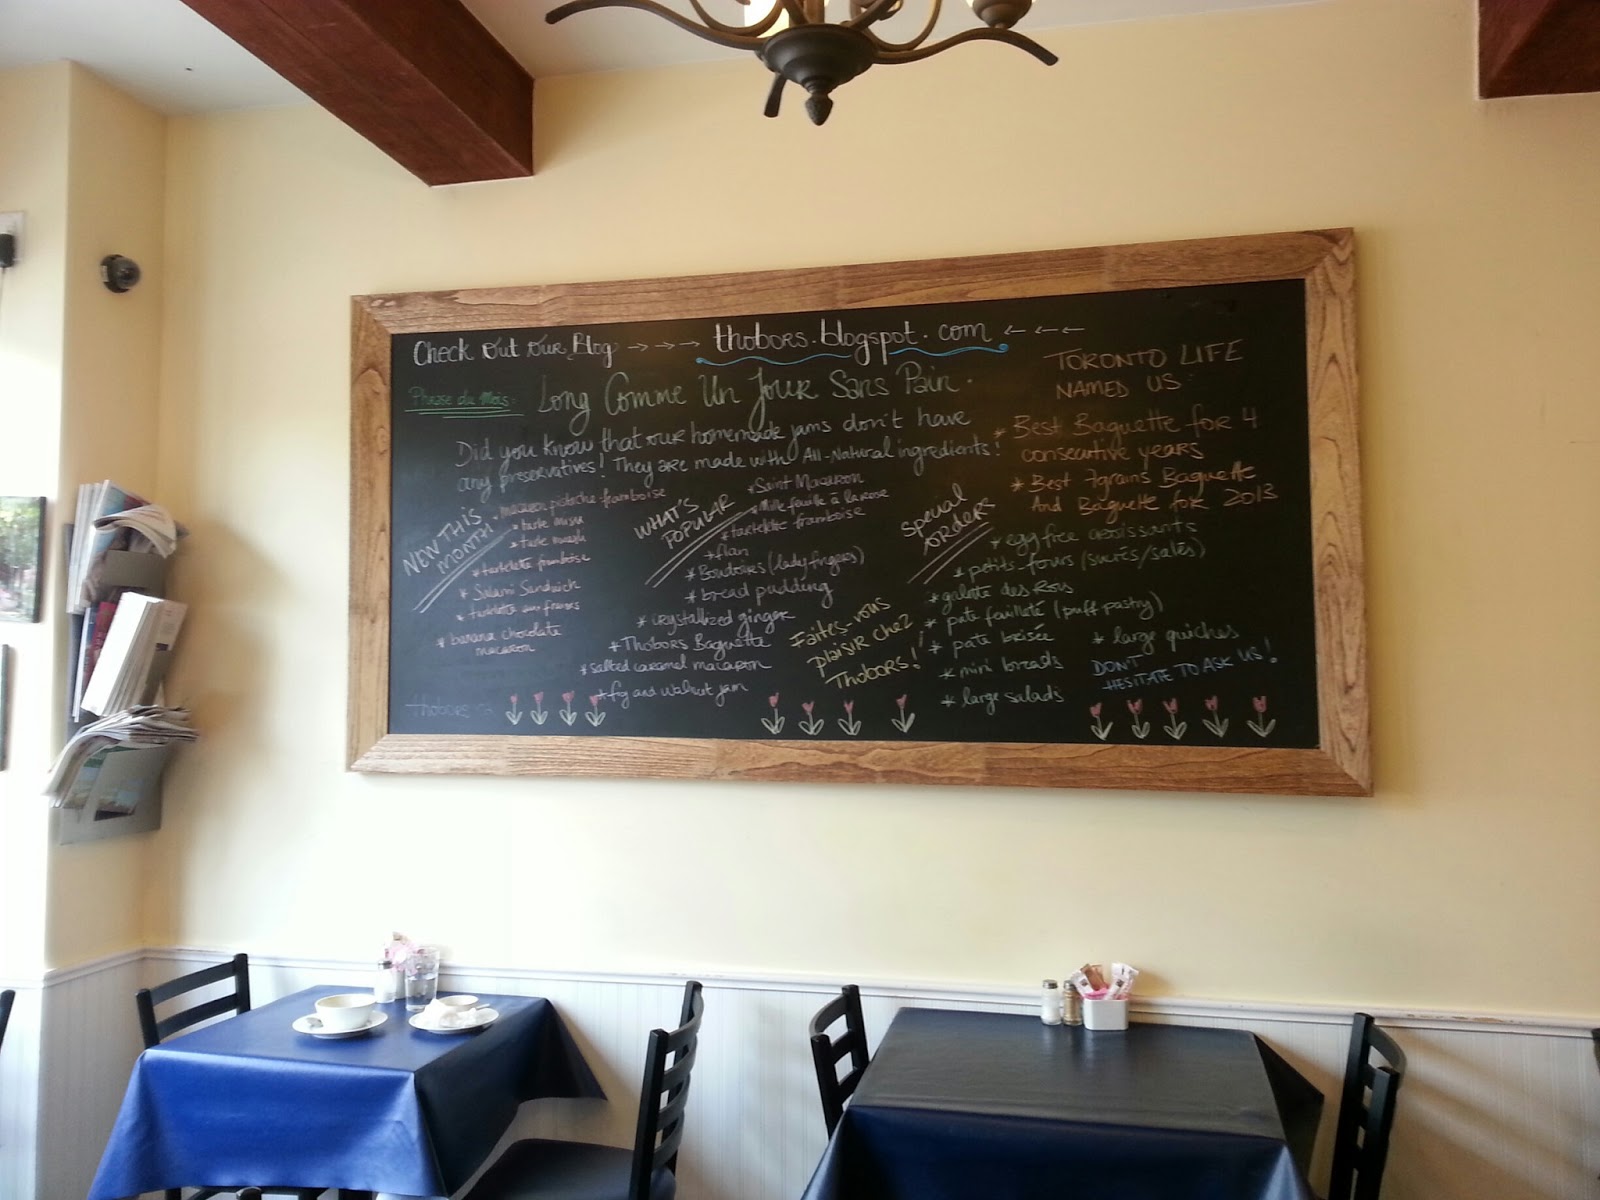 Check Out Our Blog → → → thobors.blogspot.com ← ← ←
Phrase du Mois: Long Comme Un Jour Sans Pain.
Did you know that our homemade jams don't have
any preservatives! They are made with All-Natural ingredients!
TORONTO LIFE
NAMED US
* Best Baguette for 4
consecutive years
* Best 7grains Baguette
And Baguette for 2013
NEW THIS
MONTH
* macaron pistache framboise
* tarte
* tarte
* tartelette framboise
* Salami Sandwich
* tartelette aux
* banana chocolate
macaron
WHAT'S
POPULAR
* Saint Macaron
* Mille feuille à la rose
* tartelette framboise
* flan
* Boudoirs (lady fingers)
* bread pudding
* crystallized ginger
* Thobors Baguette
* salted caramel macaron
* fig and walnut jam
Faites-vous
plaisir chez
Thobors!
Special
orders
* egg free croissants
* petits-fours (sucrés/salés)
* galette des Rois
* pate feuilleté (puff pastry)
* pate brisée
* mini breads
* large salads
* large quiches
DON'T
HESITATE TO ASK US!